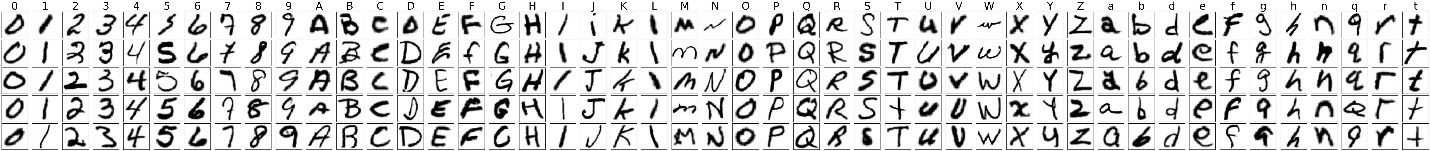 0 1 2 3 4 5 6 7 8 9 A B C D E F G H I J K L M N O P Q R S T U V W X Y Z a b d e f g h n q r t
0 1 2 3 4 5 6 7 8 9 A B C D E F G H I j K L M N O P Q R S T U V w X Y Z a b d e F g h n q r t
0 1 2 3 4 5 6 7 8 9 A B C D E f G H I J K L m N O P Q R S T U V w X y Z a b d e f g h n q r t
0 1 2 3 4 5 6 7 8 9 A B C D E F G H I J K L m N O P Q R S T U V W X Y Z a b d e f g h n q r t
0 1 2 3 4 5 6 7 8 9 A B C D E F G H I J K L m N O P Q R S t U V W x Y Z a b d e f g h n q r t
0 1 2 3 4 5 6 7 8 9 A B C D E F G H I J K L M N O P Q R S T U V W X y Z a b d e f g h n q r t